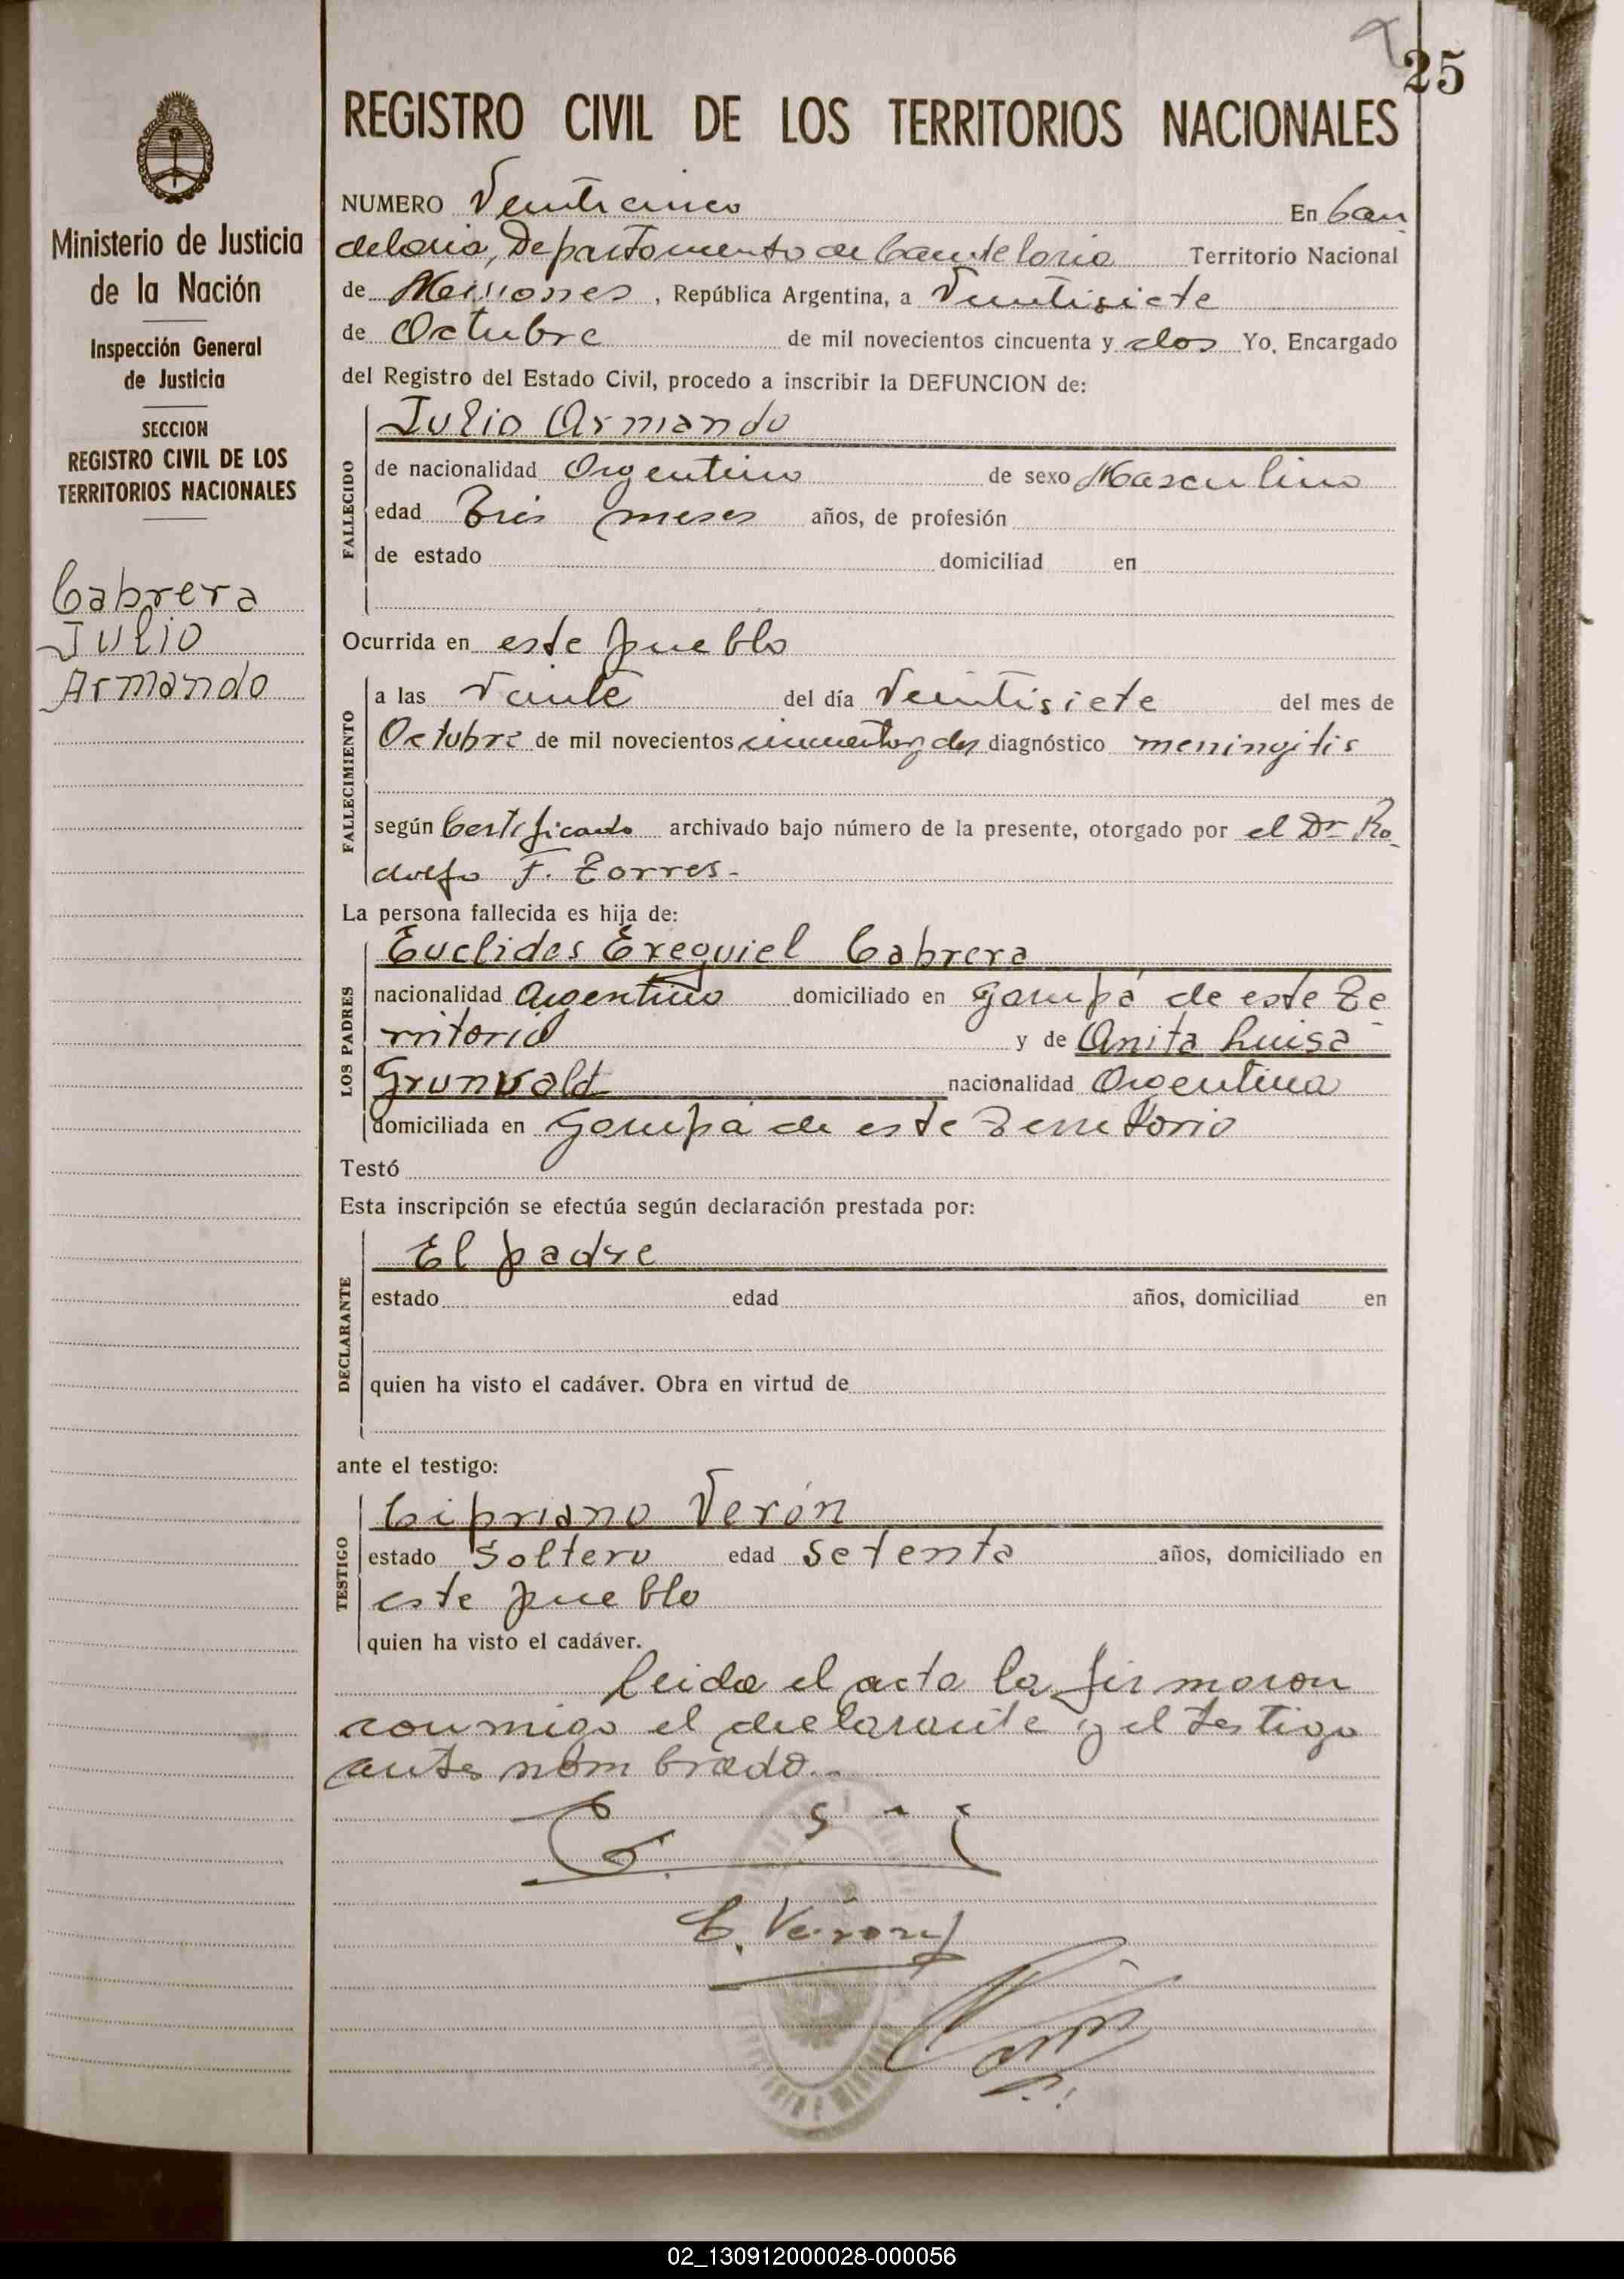 25
REGISTRO CIVIL DE LOS TERRITORIOS NACIONALES
Ministerio de Justicia
de la Nación
Inspección General
de Justicia
SECCION
REGISTRO CIVIL DE LOS
TERRITORIOS NACIONALES
Cabrera
Julio
Armando
NUMERO Veinticinco En Can
delaria, Departamento de Candelaria Territorio Nacional
de Misiones, República Argentina, a Veintisiete
de Octubre de mil novecientos cincuenta y dos Yo, Encargado
del Registro del Estado Civil, procedo a inscribir la DEFUNCION de:
FALLECIDO
Julio Armando
de nacionalidad Argentino de sexo Masculino
edad Tres meses años, de profesión
de estado domiciliad en
Ocurrida en este pueblo
FALLECIMIENTO
a las Veinte del día Veintisiete del mes de
Octubre de mil novecientos cincuenta y dos diagnóstico meningitis
según Certificado archivado bajo número de la presente, otorgado por el Dr Ro
dolfo F. Torres.-
La persona fallecida es hija de:
LOS PADRES
Euclides Exequiel Cabrera
nacionalidad Argentino domiciliado en Garupá de este Te
rritorio y de Anita Luisa
Grunvald nacionalidad Argentina
domiciliada en Garupá de este Territorio
Testó
Esta inscripción se efectúa según declaración prestada por:
DECLARANTE
El padre
estado edad años, domiciliad en
quien ha visto el cadáver. Obra en virtud de
ante el testigo:
TESTIGO
Cipriano Verón
estado Soltero edad Setenta años, domiciliado en
este pueblo
quien ha visto el cadáver.
Leida el acta la firmaron
conmigo el declarante y el testigo
antes nombrado.-
C. Verón
02_130912000028-000056